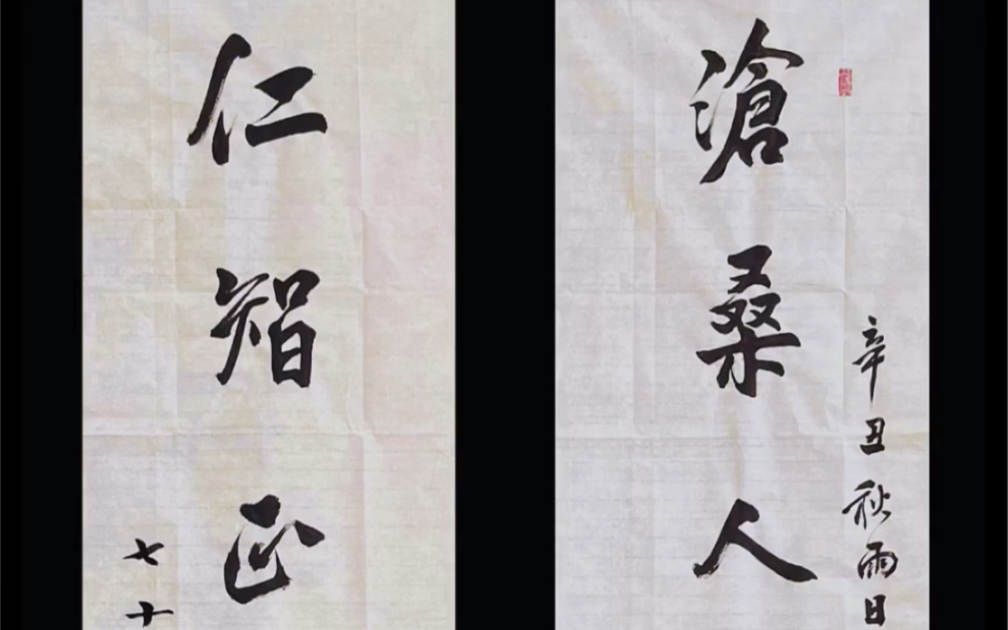 辛丑秋雨日
滄桑人
仁智正
七十